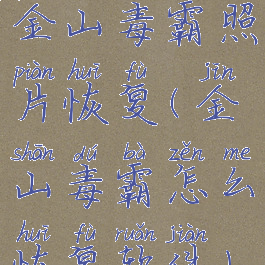 金山毒霸照
piàn huī fù jīn
片恢复(金
shān dú bà zěn me
山毒霸怎么
huī fù ruǎn jiàn
恢复软件)